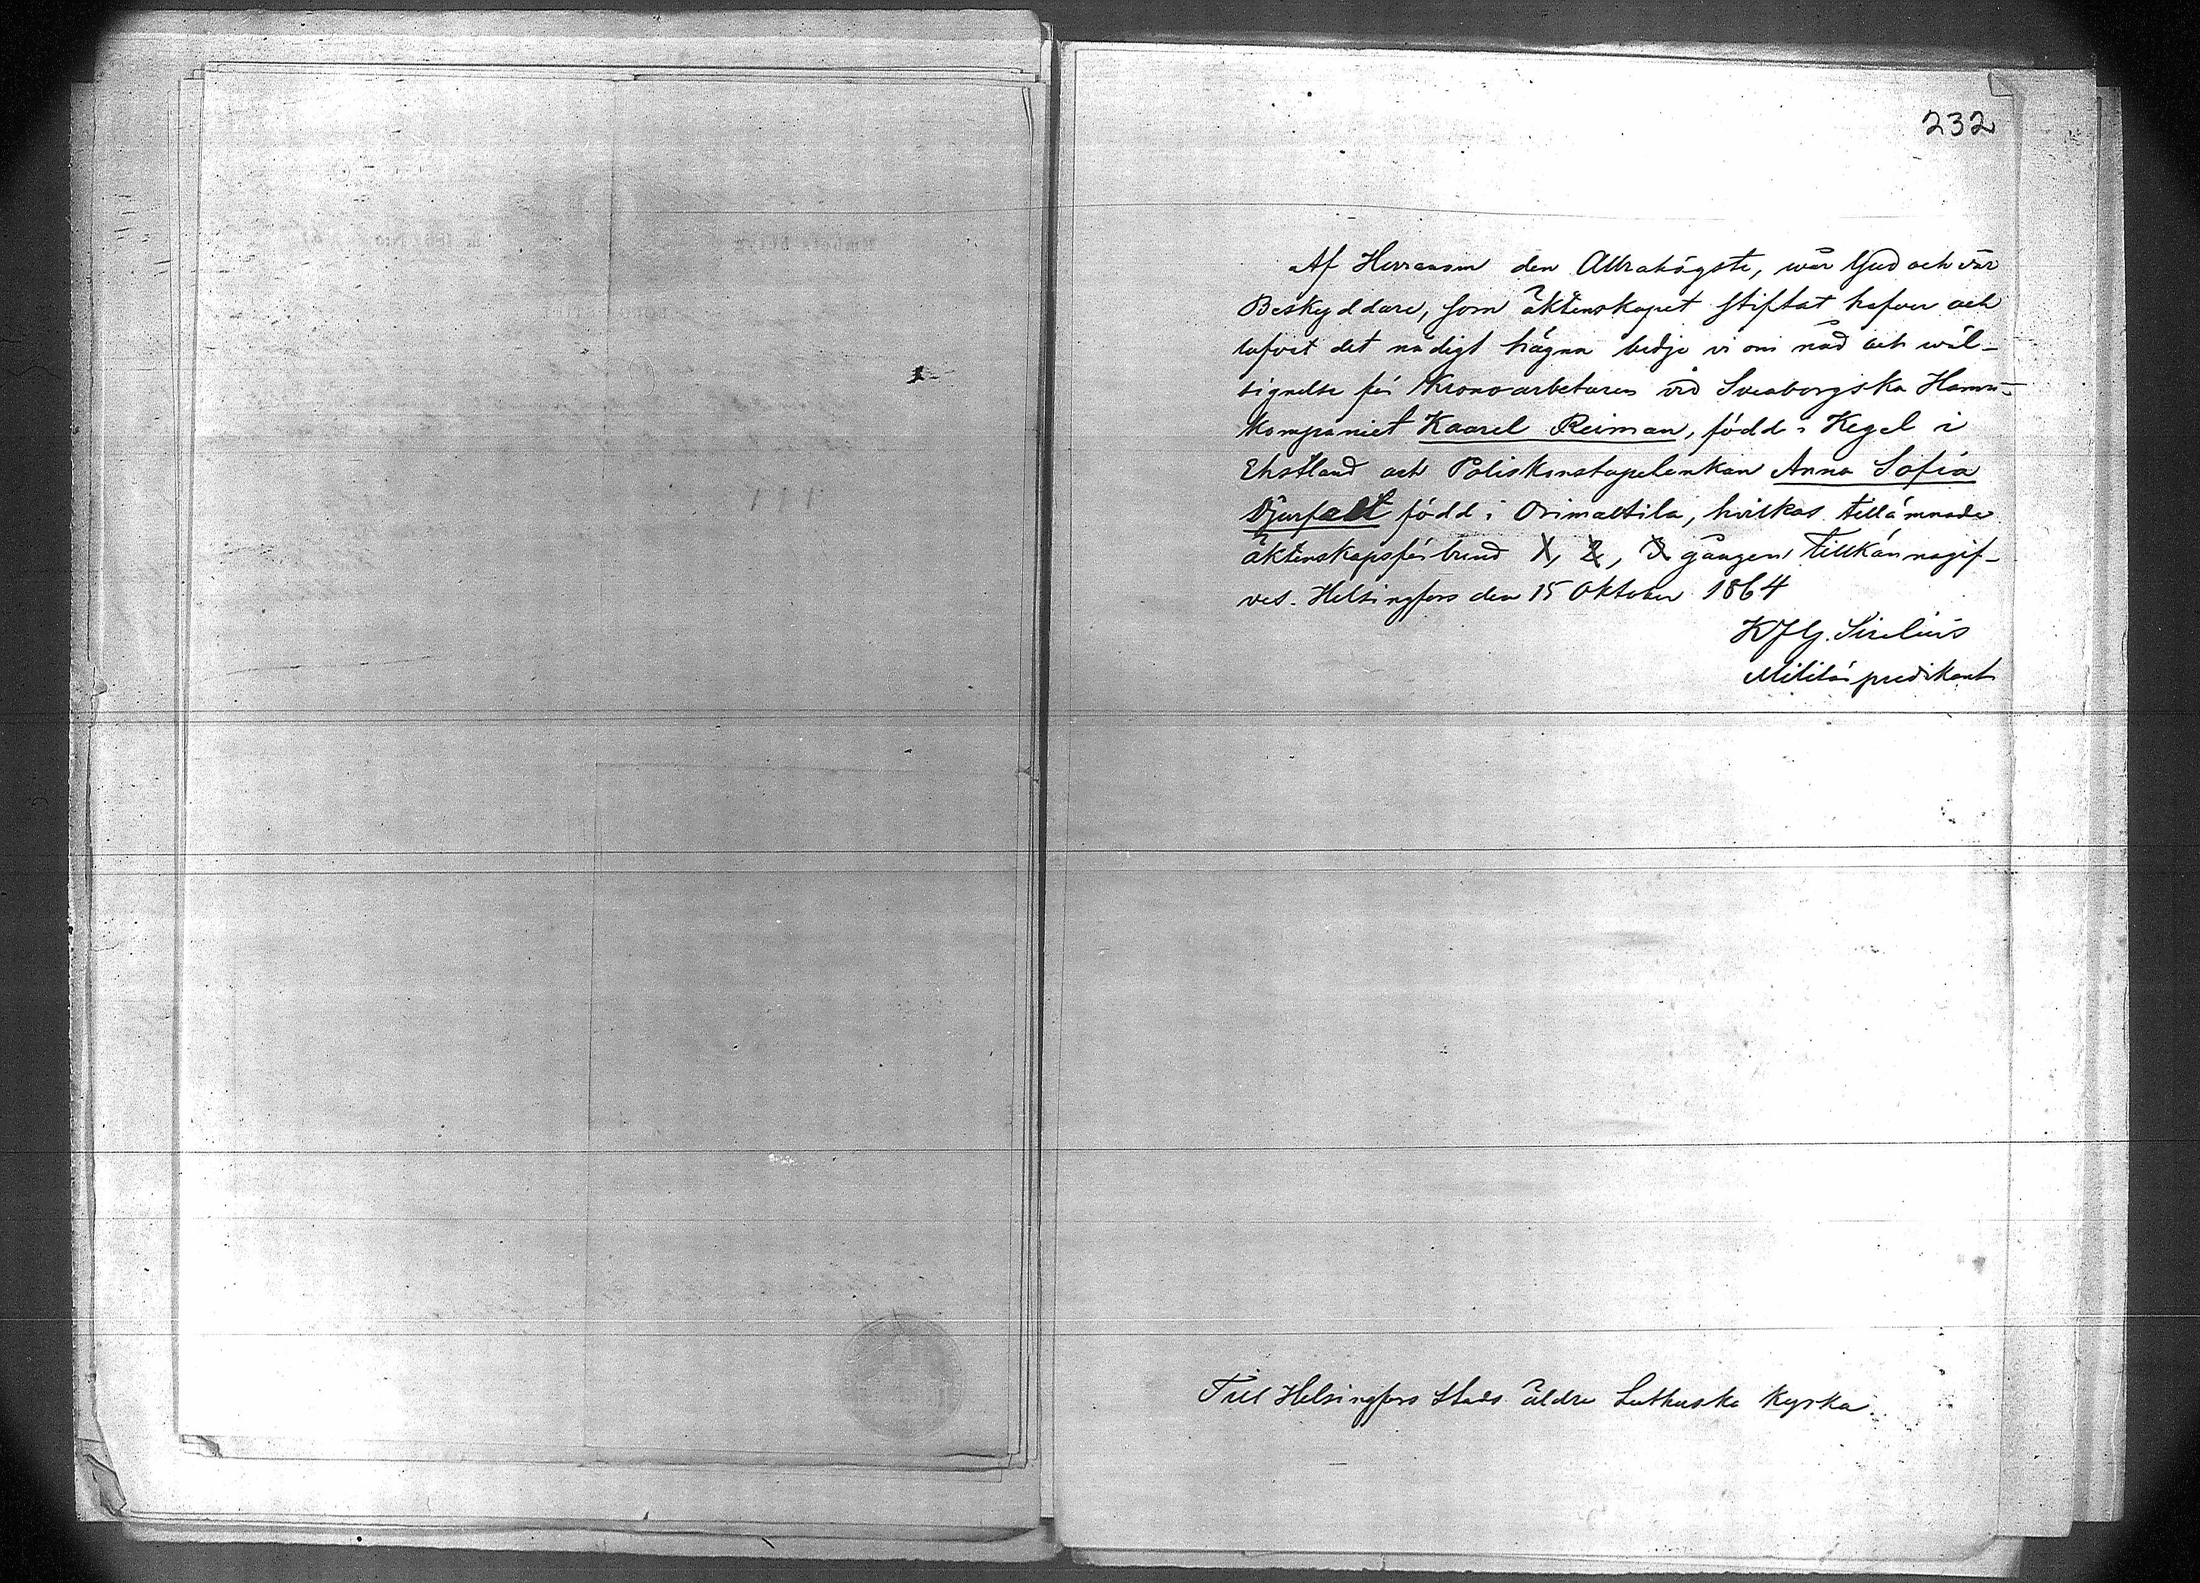 232
Af Herranom den Allrahögste, wår Gud och vår
Beskyddare, som äktenskapet stiftat hafver och
lofvat det nådigt hägna bedje vi om nåd och wäl-
signelse för Kronoarbetaren vid Sveaborgska Hamn-
kompaniet Kaarel Reiman, född i Kegel i
Ehstland och Poliskonstapelenkan Anna Sofia
Djurfelt född i Orimattila, hvilkas tillämnade
äktenskapsförbund 1, 2, 3 gången tillkännagif-
ves. Helsingfors den 15 Oktober 1864
KJG. Sirelius
Militärpredikant
Till Helsingfors Stads äldre Lutherska Kyrka.